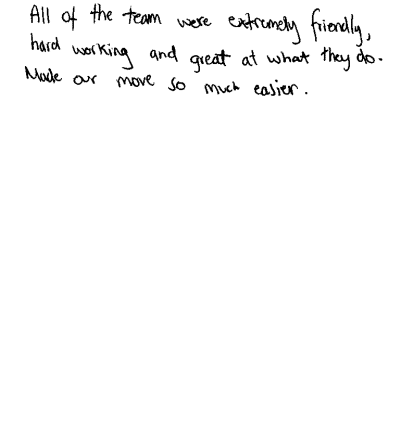 All of the team were extremely friendly,
hard working and great at what they do.
Made our move so much easier.